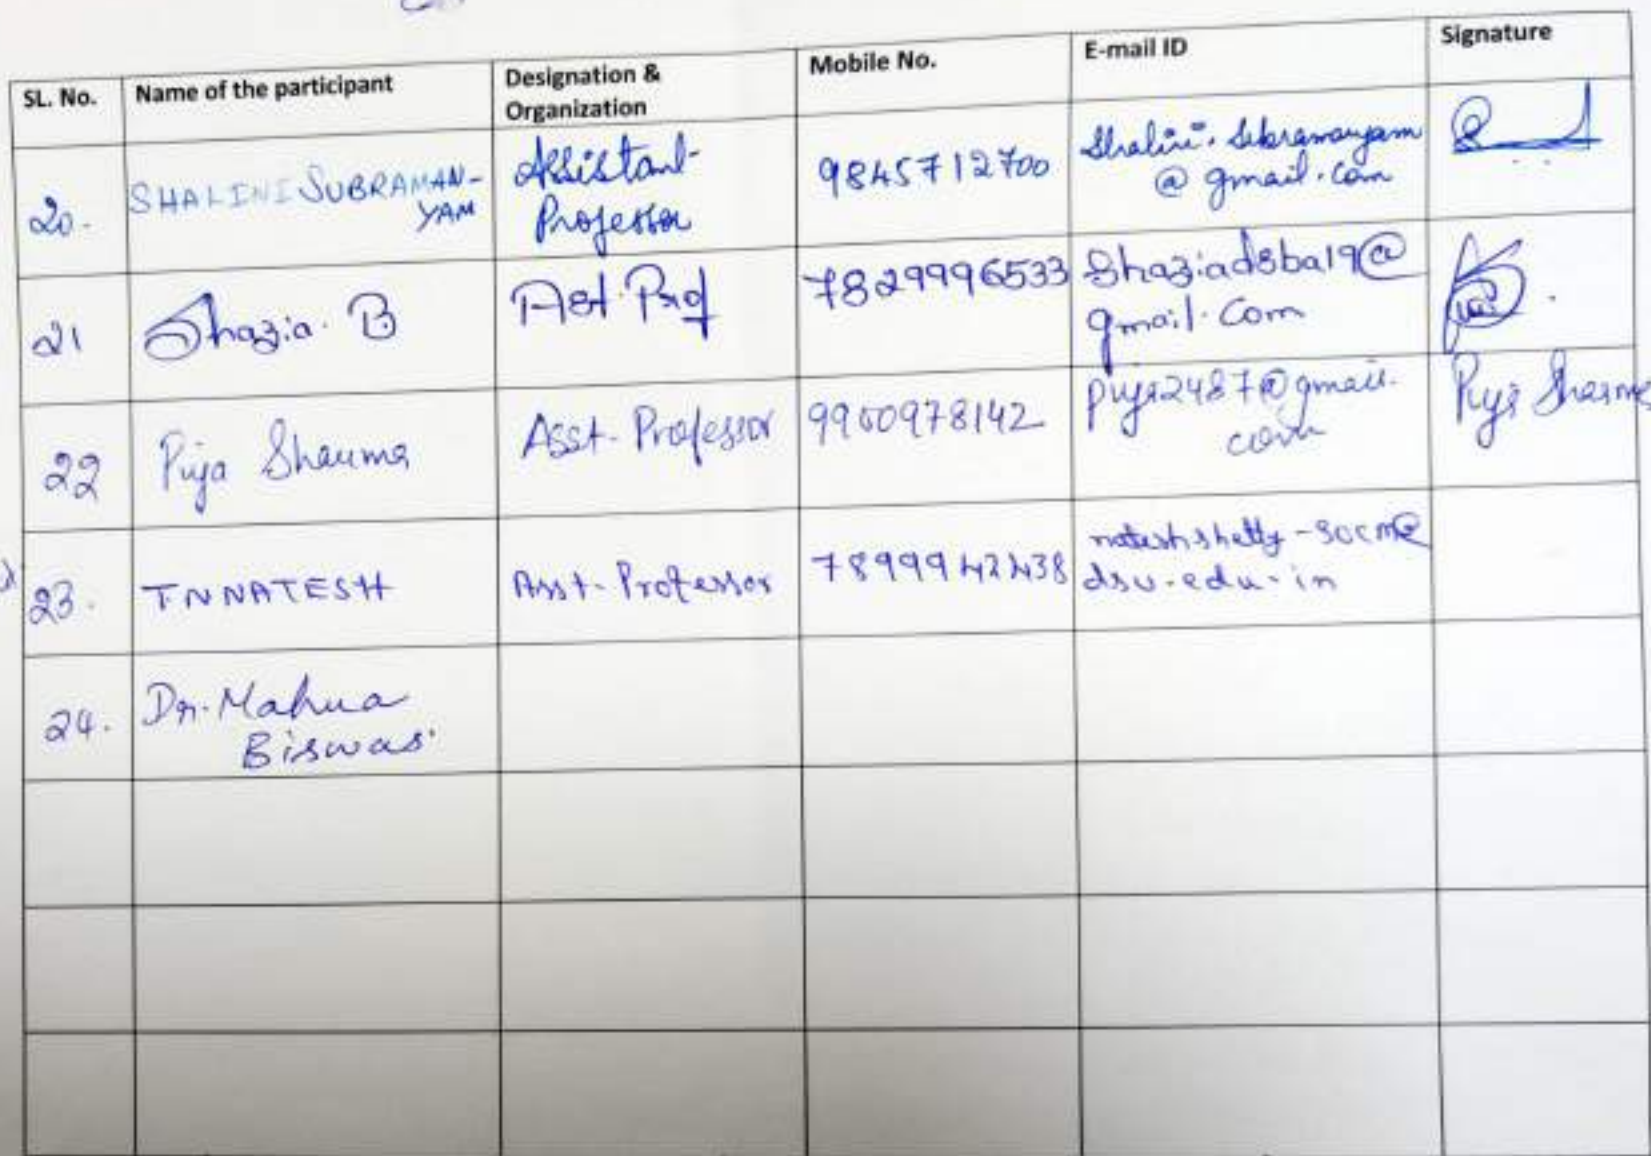 SL. No. Name of the participant Designation & Organization Mobile No. E-mail ID Signature
20. SHALINI SUBRAMAN- Assistant 9845712700 Shalini.Subramanyam
YAM Professor @ gmail.com
21 Shazia. B Ast. Prof 7829996533 Shaziadsba19@
gmail.com
22 Puja Sharma Asst. Professor 9960978142 puja2487@gmail. Puja Sharma
com
23. TNNATESH Asst. Professor 7899942438 nateshshetty-socm@
dsu.edu.in
24. Dr. Mahua
Biswas.